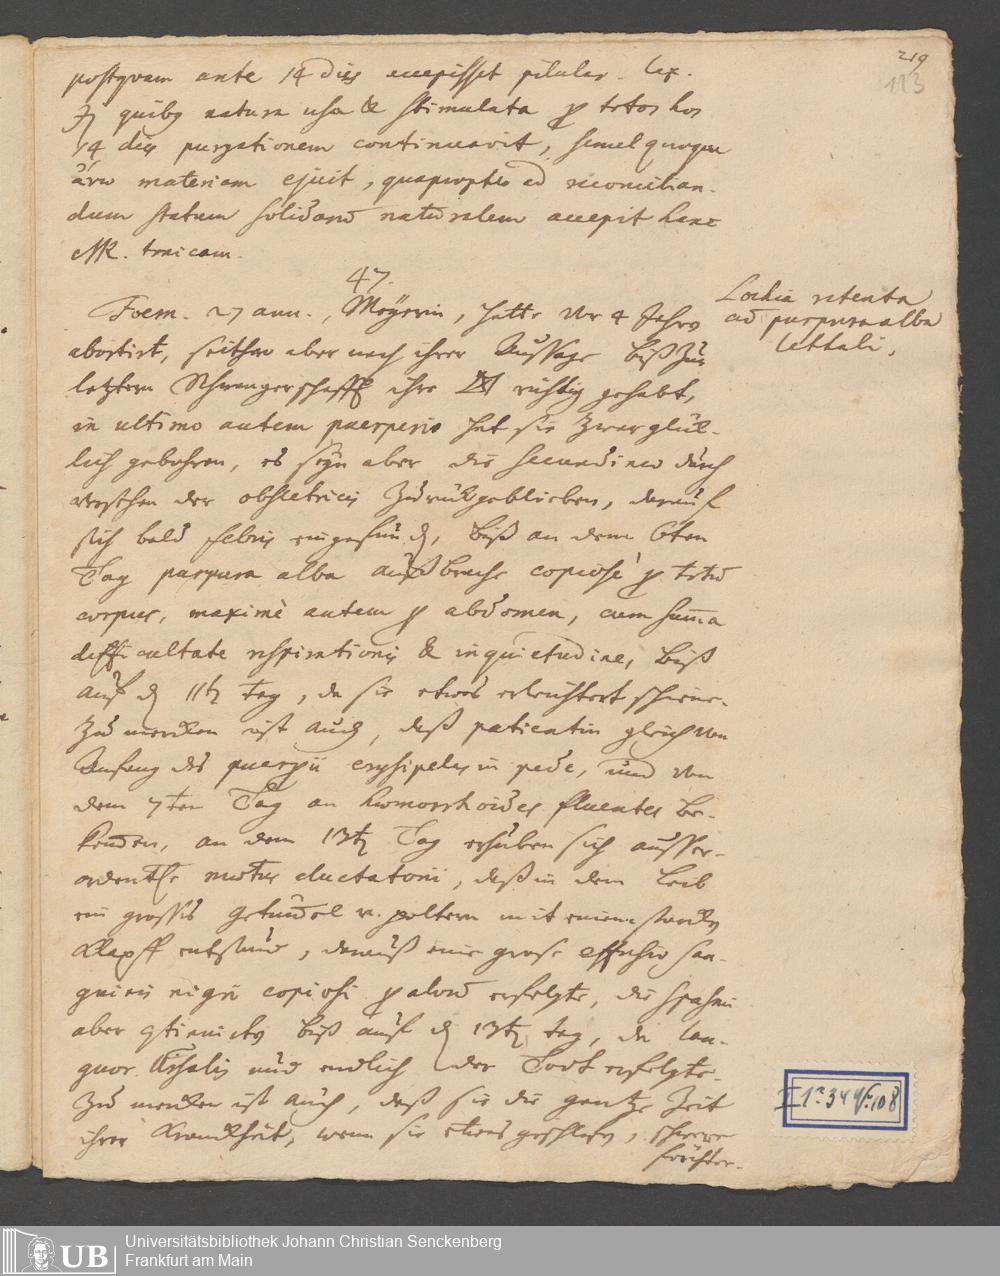 219
113
postquam ante 14 dies accepisset pilular. lax.
quib9 natura usa & stimulata p totos hos
14 dies purgationem continuavit, semel quoque
ἄνω materiam ejicit, quapropter ad reconcilian-
dum statum solidorū naturalem accepit hanc
MR. tonicam.
47.
Lochia retenta
cū purpura alba
lethali.
Foem. 27 ann., Meÿerin, hatte vor 4 Jahrn
abortirt, seither aber nach ihrer Außsage biß zur
letztern Schwangerschafft ihre richtig gehabt,
in ultimo autem puerperio hat sie zwar glük-
lich gebohren, es seÿn aber die secundinae durch
versehen der obstetricis zurükgeblieben, darauf
sich bald febris eingefunden, biß an dem 6ten
Tag purpura alba außbrache copiosè p totū
corpus, maximè autem p abdomen, cum sum̄a
difficultate respirationis & inquietudine, biß
auf d 11tn Tag, da sie etwas erleichtert schiene.
Zu merken ist auch, daß patientin gleich von
Anfang des puerperii erysipelas in pede, und von
dem 7ten Tag an haemorrhoides fluentes be-
kom̄en, an dem 13tn Tag erhuben sich ausser-
ordentliche motus eluctatorii, daß in dem Leib
ein grosses getümel u. poltern mit einem starken
Klapff entstund, darauf eine grose effusio san-
guinis nigri copiosi p alvū erfolgte, die spasmi
aber biß auf d 13tn tag, da lan-
guor lethalis und endlich der Todt erfolgte.
Zu merken ist auch, daß sie die gantze Zeit
ihrer Krankheit, wenn sie etwas geschlafen, schwere
II 1° 344 f. 108
UB
Universitätsbibliothek Johann Christian Senckenberg
Frankfurt am Main